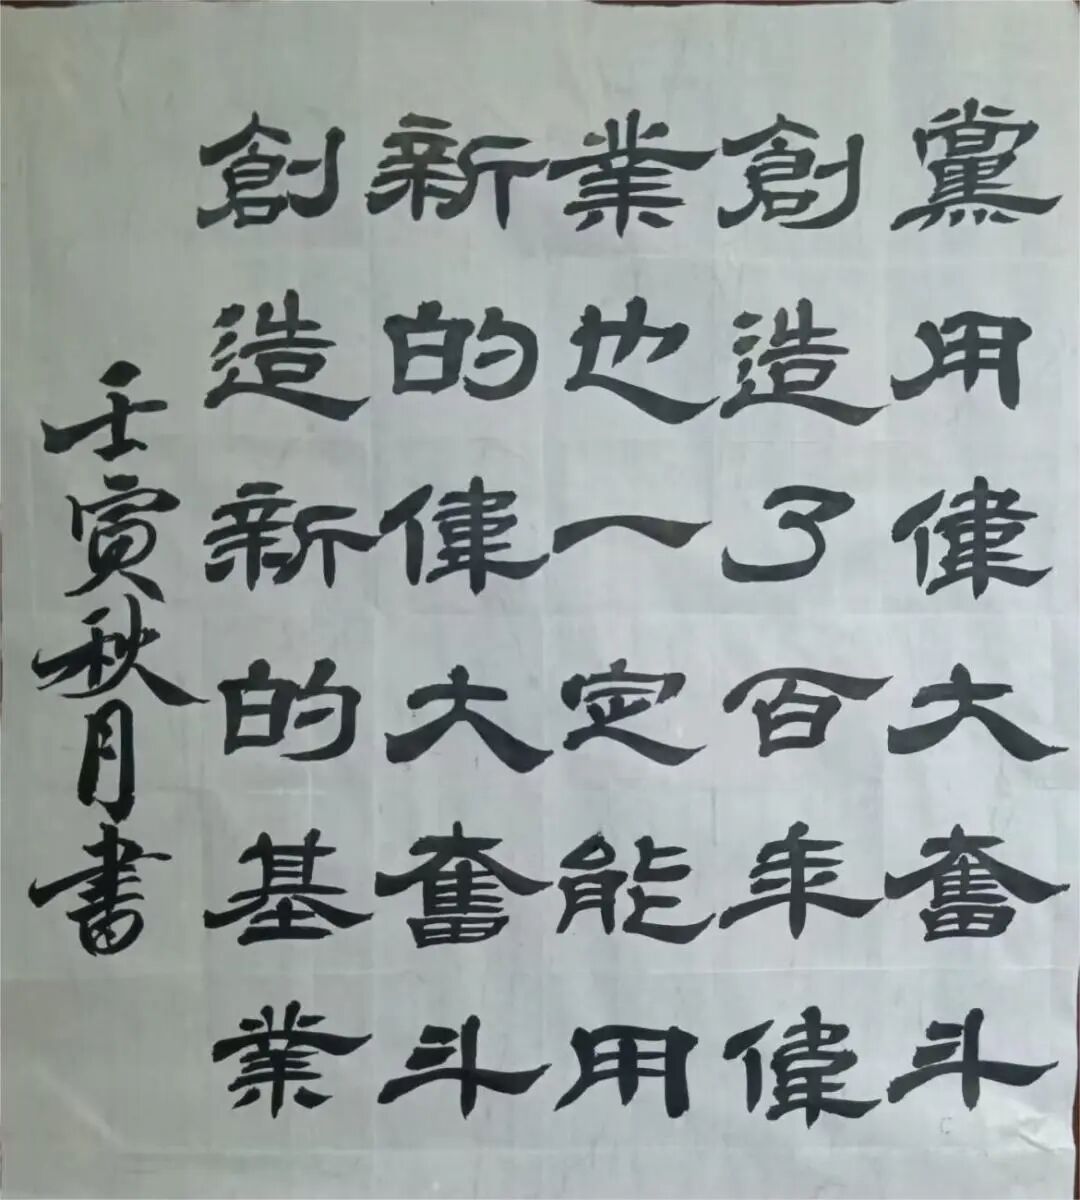 黨用偉大奮斗
創造了百年偉
業也一定能用
新的偉大奮斗
創造新的基業
壬寅秋月書